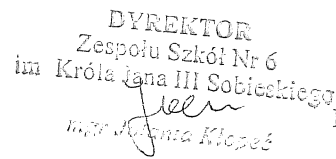 DYREKTOR
Zespołu Szkół Nr 6
im Króla Jana III Sobieskiego
mgr Jolanta Kłopeć